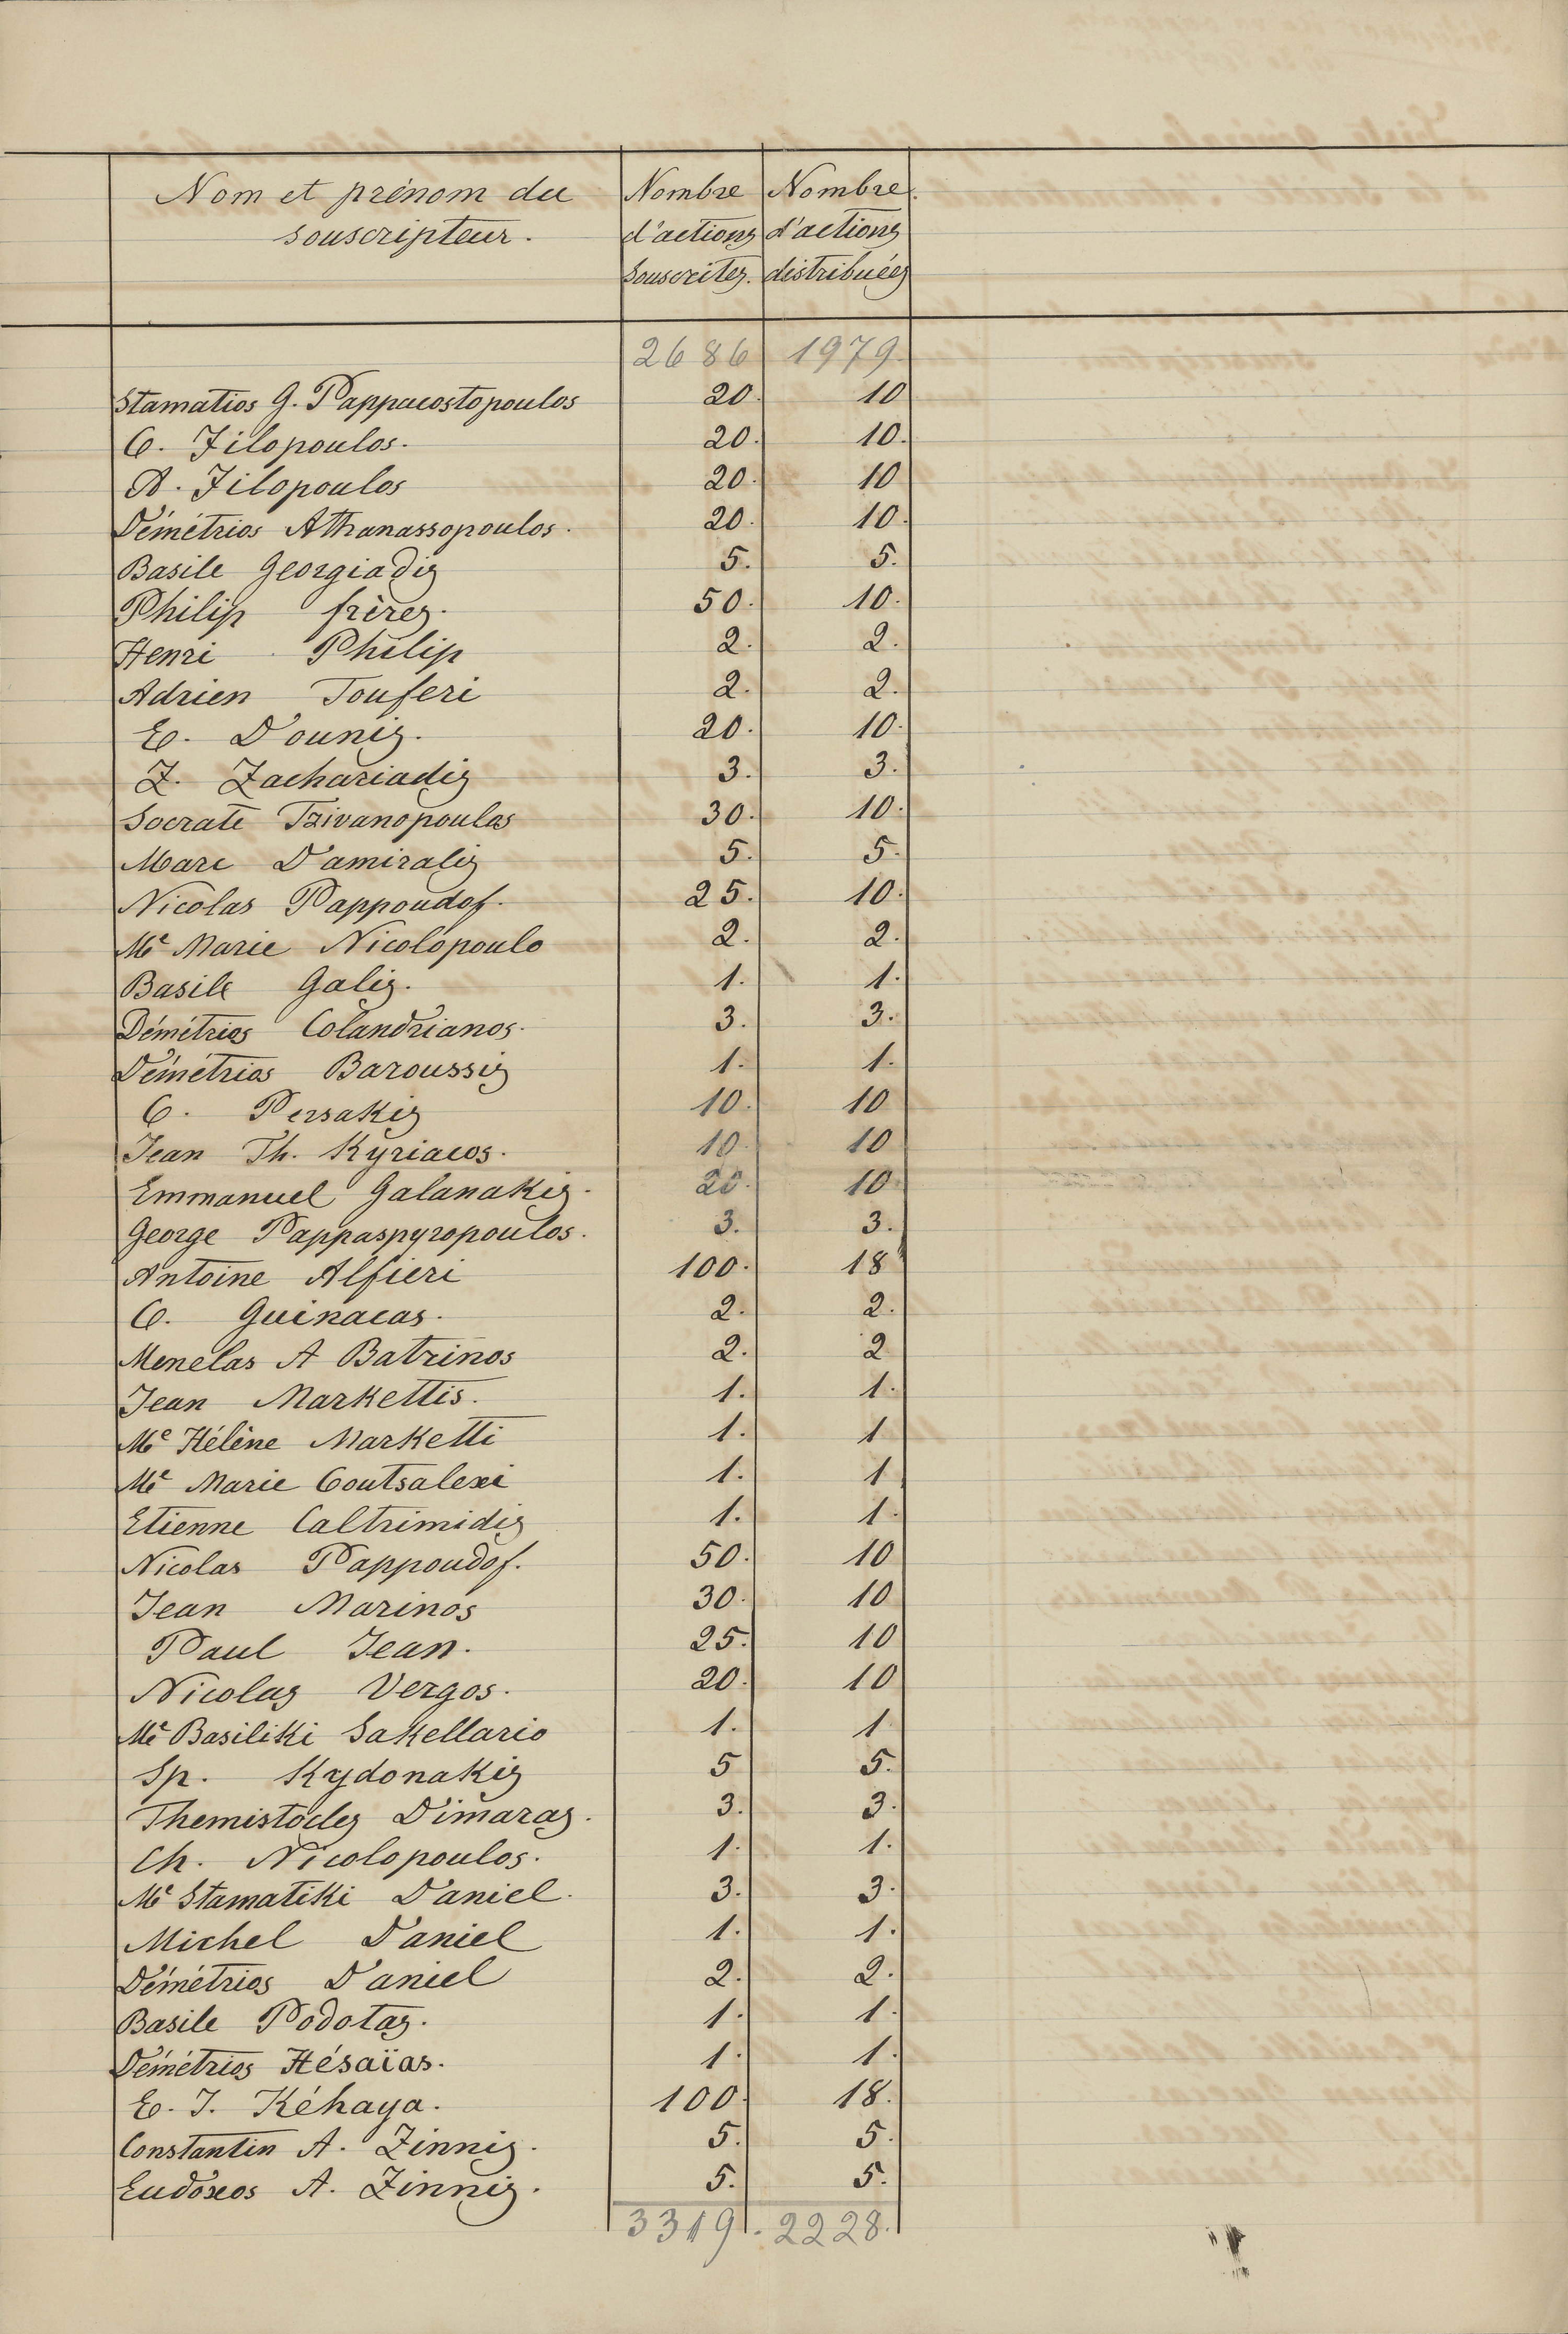 Nom et prénom du Nombre Nombre
souscripteur. d'actions d'actions
souscrites. distribuées
2686 1979.
Stamatios G. Pappacostopoulos 20. 10
C. Filopoulos. 20. 10.
A. Filopoulos 20. 10
Démétrios Athanassopoulos. 20. 10.
Basile Georgiadis 5. 5.
Philip frères. 50. 10.
Henri Philip 2. 2.
Adrien Touferi 2. 2.
E. Dounis. 20. 10.
Z. Zachariadis 3. 3.
Socrate Tzivanopoulos 30. 10.
Marc Damiralis 5. 5.
Nicolas Pappoudof. 25. 10.
Me Marie Nicolopoulo 2. 2.
Basile Galis. 1. 1.
Démétrios Colandrianos. 3. 3.
Démétrios Baroussis 1. 1.
C. Persakis 10. 10
Jean Th. Kyriacos. 10. 10
Emmanuel Galanakis. 20. 10
George Pappaspyropoulos. 3. 3.
Antoine Alfieri 100. 18
C. Guinacas. 2. 2.
Menelas A Batrinos 2. 2
Jean Markettis. 1. 1.
Me Hélène Marketti 1. 1
Me Marie Coutsalexi 1. 1
Etienne Caltrimidis 1. 1.
Nicolas Pappoudof. 50. 10
Jean Marinos 30. 10
Paul Jean. 25. 10
Nicolas Vergos. 20. 10
Me Basiliki Sakellario 1. 1
Sp. Kydonakis 5 5.
Themistocles Dimaras. 3. 3.
Ch. Nicolopoulos. 1. 1.
Me Stamatiki Daniel. 3. 3.
Michel Daniel 1. 1.
Démétrios Daniel 2. 2.
Basile Podotas. 1. 1.
Démétrios Hésaïas. 1. 1.
E. J. Kéhaya. 100. 18.
Constantin A. Zinnis. 5. 5.
Eudoxos A. Zinnis. 5. 5.
3319. 2228.